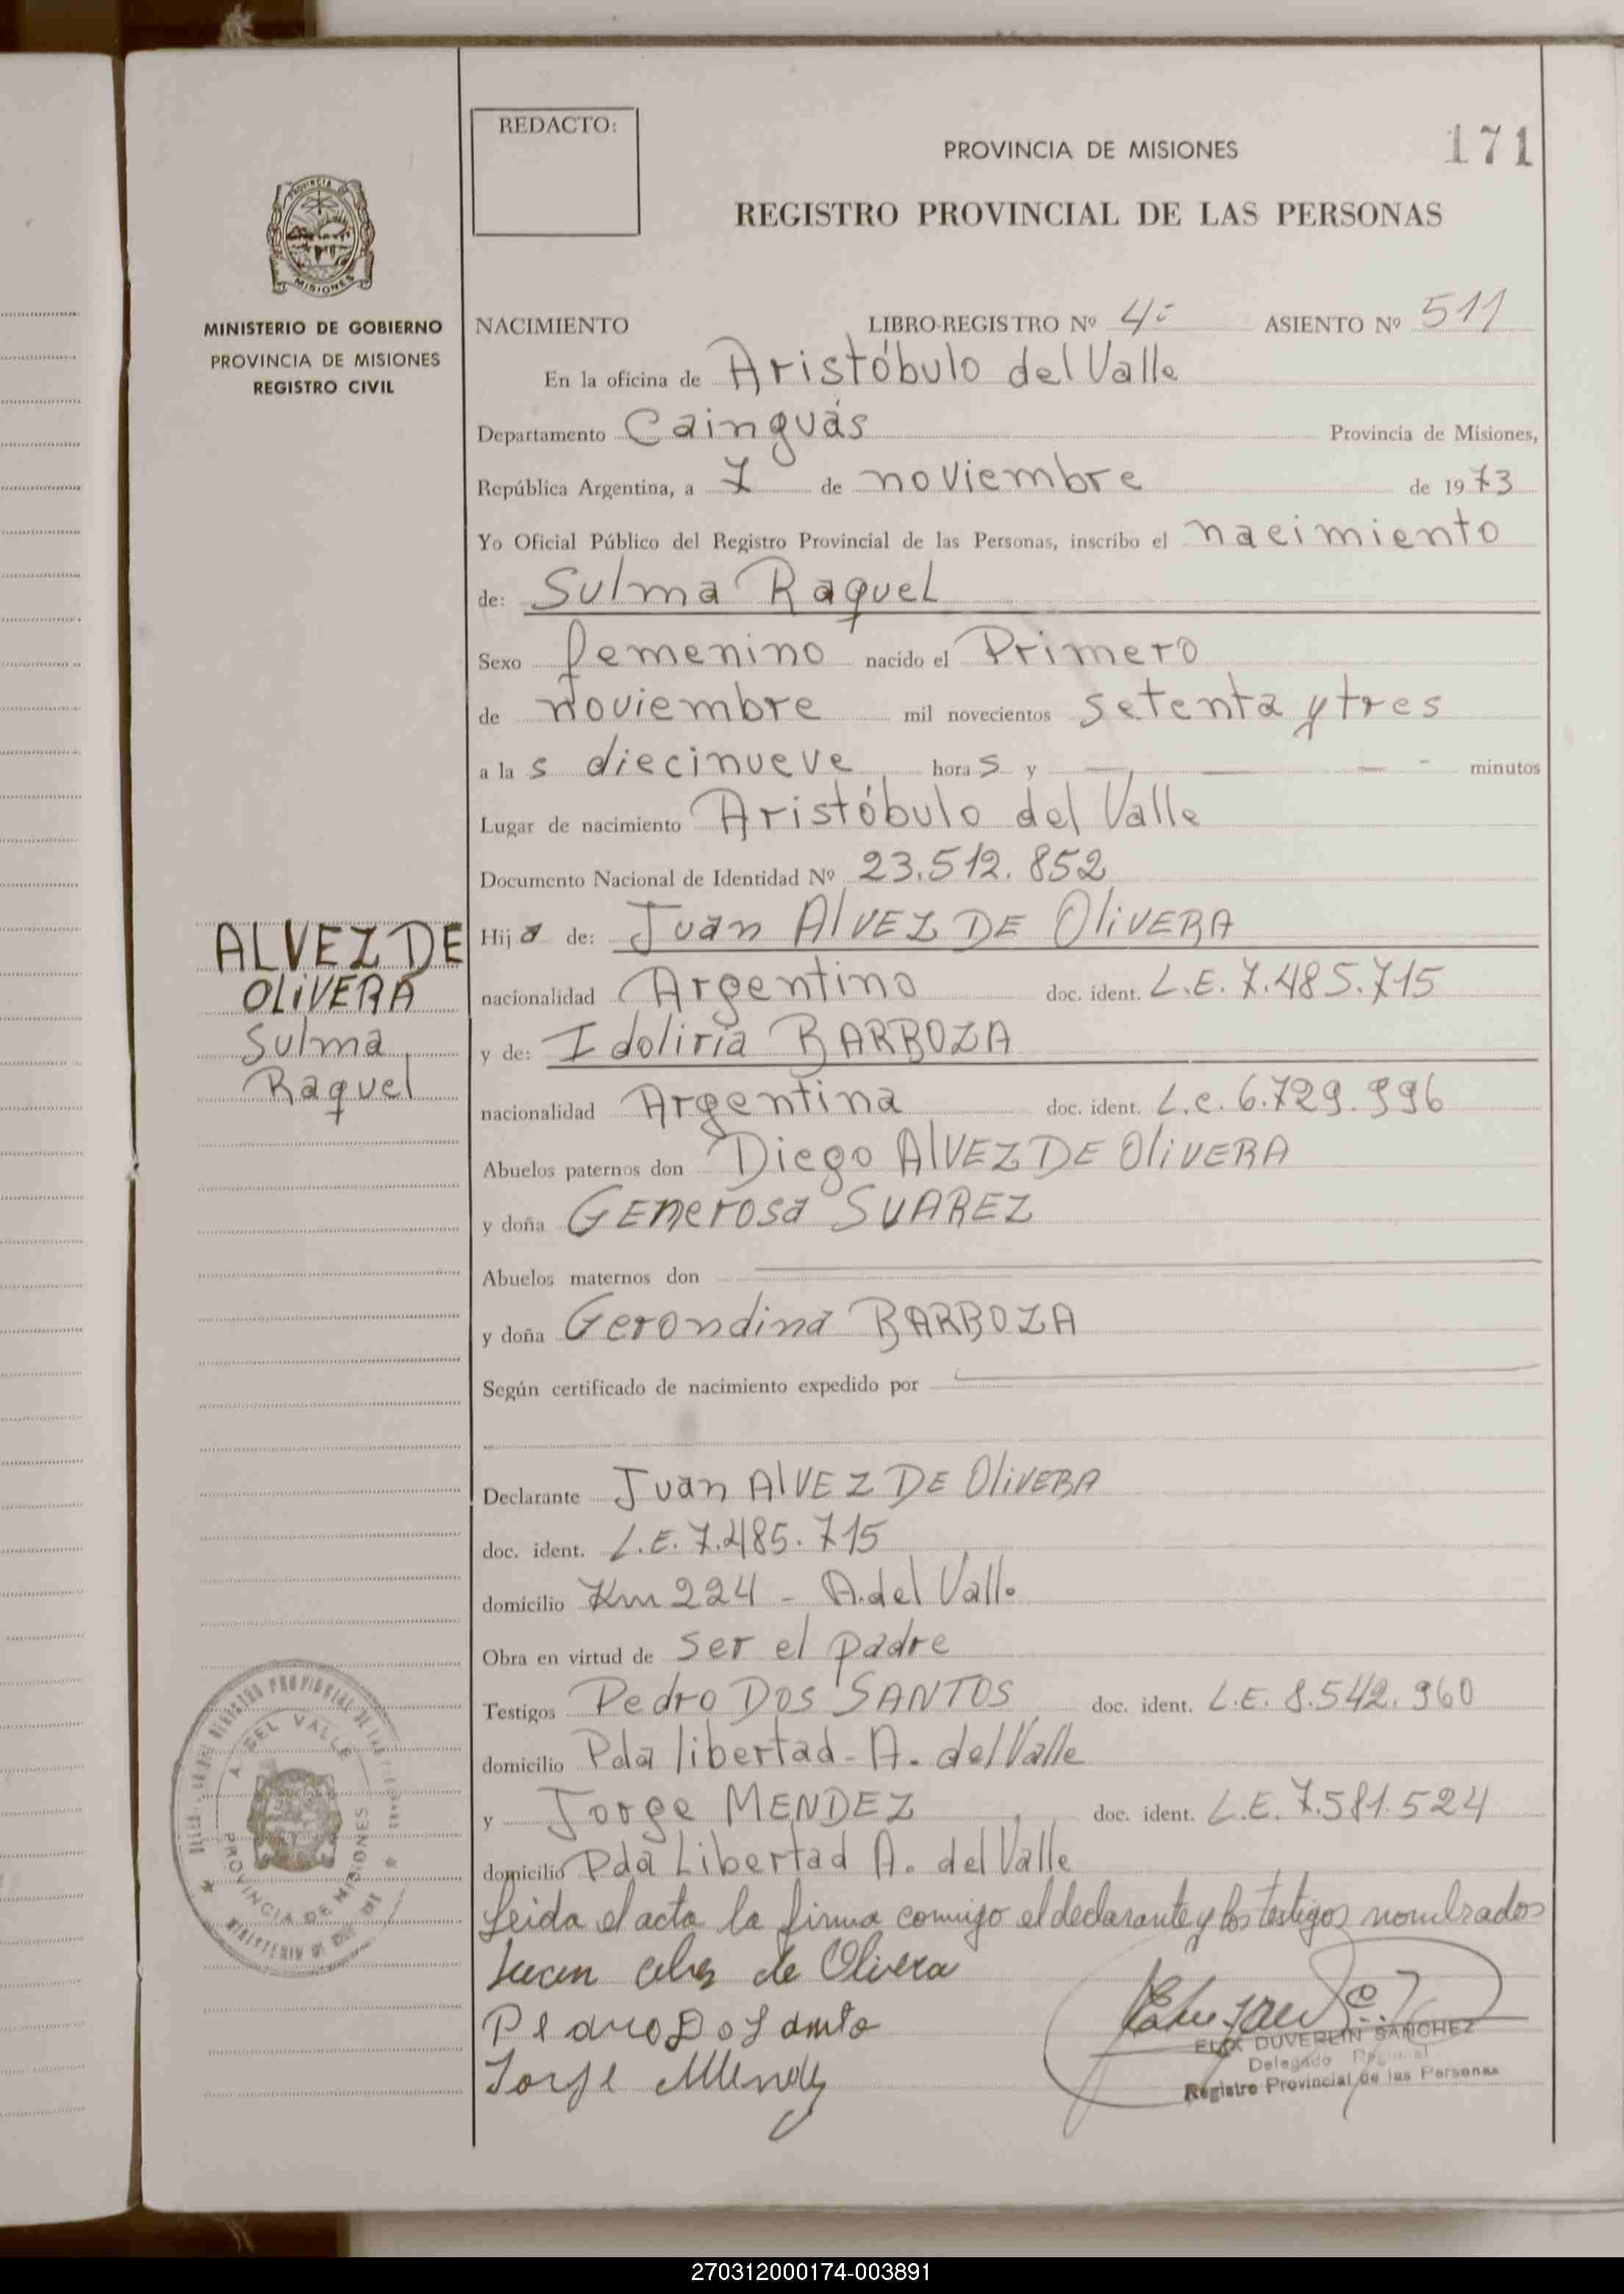 REDACTO:
PROVINCIA DE MISIONES
171
REGISTRO PROVINCIAL DE LAS PERSONAS
PROVINCIA DE
MISIONES
MINISTERIO DE GOBIERNO
PROVINCIA DE MISIONES
REGISTRO CIVIL
NACIMIENTO LIBRO-REGISTRO Nº 4º ASIENTO Nº 511
En la oficina de Aristóbulo del Valle
Departamento Cainguás Provincia de Misiones,
República Argentina, a 7 de noviembre de 1973
Yo Oficial Público del Registro Provincial de las Personas, inscribo el nacimiento
de: Sulma Raquel
Sexo femenino nacido el Primero
de noviembre mil novecientos setenta y tres
a las diecinueve horas y — — — - minutos
Lugar de nacimiento Aristóbulo del Valle
Documento Nacional de Identidad Nº 23.512.852
ALVEZ DE
OLIVERA
Sulma
Raquel
Hija de: Juan ALVEZ DE OLIVERA
nacionalidad Argentino doc. ident. L.E. 7.485.715
y de: Idoliria BARBOZA
nacionalidad Argentina doc. ident. L.c. 6.729.996
Abuelos paternos don Diego ALVEZ DE OLIVERA
y doña Generosa SUAREZ
Abuelos maternos don
y doña Gerondina BARBOZA
Según certificado de nacimiento expedido por
Declarante Juan ALVEZ DE OLIVERA
doc. ident. L.E. 7.485.715
domicilio Km 224 - A. del Valle
Obra en virtud de ser el padre
Testigos Pedro DOS SANTOS doc. ident. L.E. 8.542.960
domicilio Pda libertad - A. del Valle
y Jorge MENDEZ doc. ident. L.E. 7.581.524
domicilio Pda Libertad A. del Valle
Leida el acta la firma conmigo el declarante y los testigos nombrados
Juan de Olivera
Jorge Mendez
ELIX DUVERLIN SANCHEZ
Delegado Regional
Registro Provincial de las Personas
A. DEL VALLE
PROVINCIA DE MISIONES
270312000174-003891